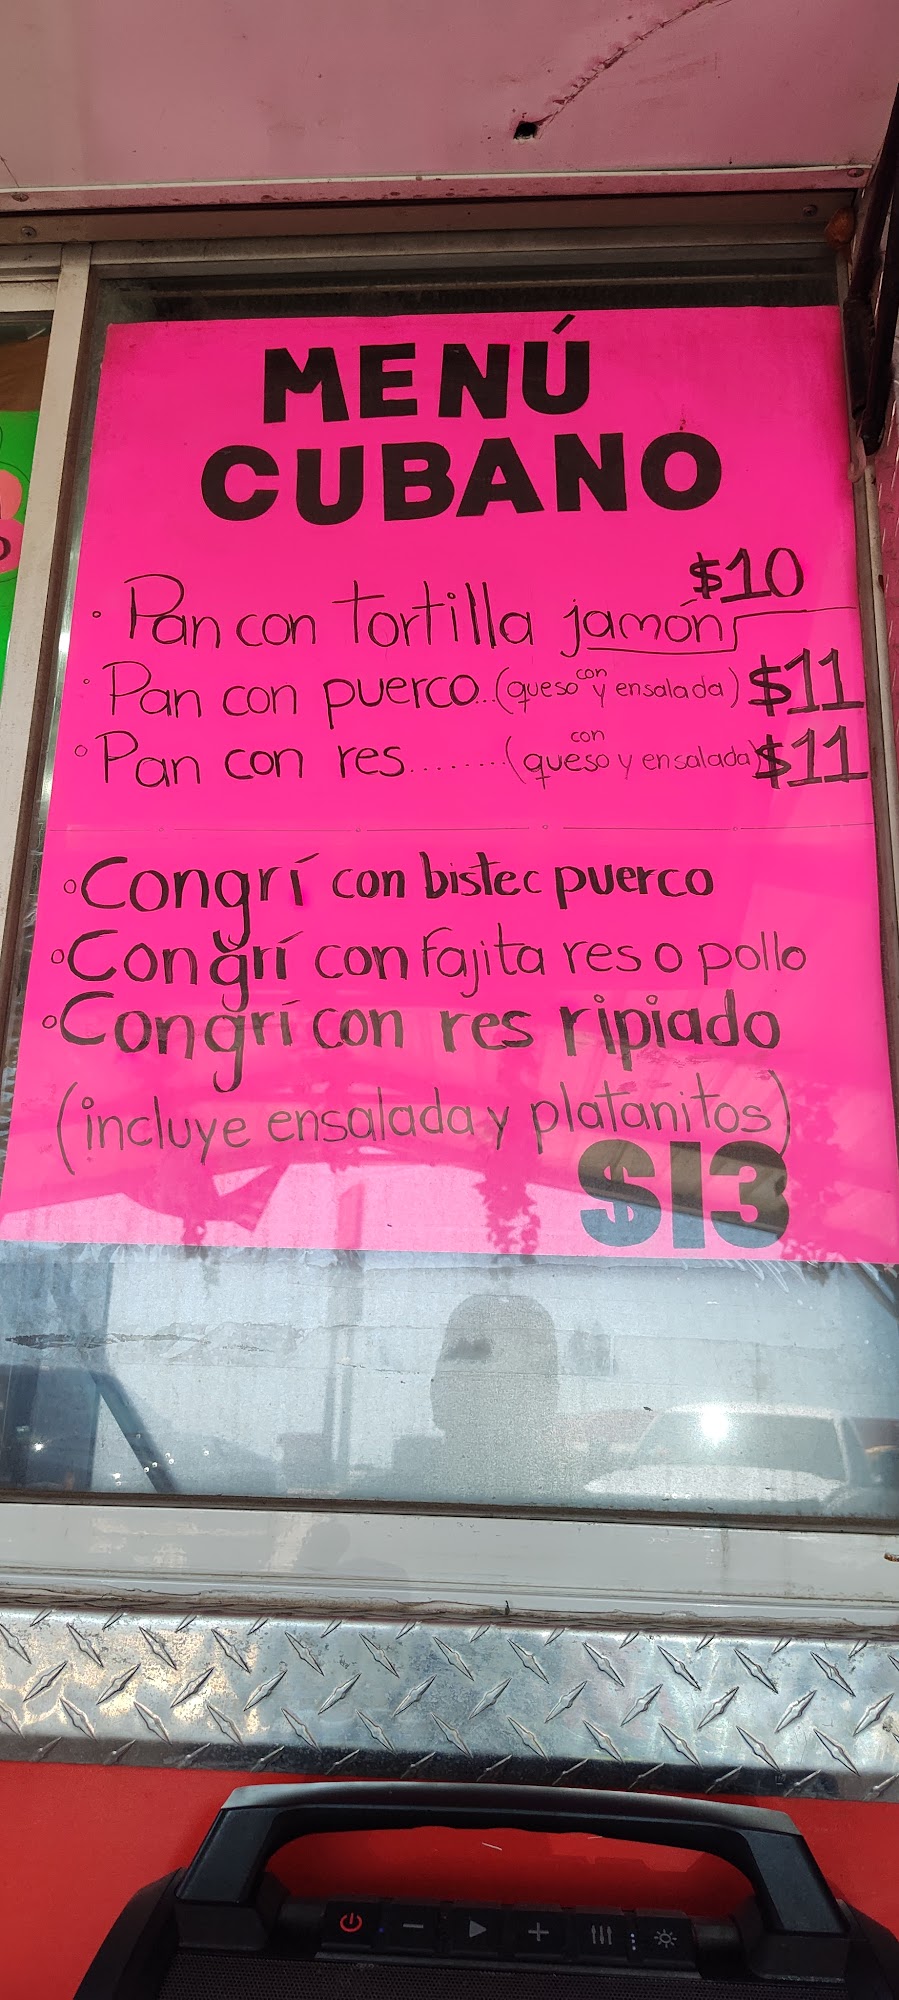 MENÚ
CUBANO
$10
• Pan con tortilla jamón
• Pan con puerco...(queso con y ensalada) $11
con
• Pan con res........(queso y ensalada) $11
• Congrí con bistec puerco
• Congrí con fajita res o pollo
• Congrí con res ripiado
(incluye ensalada y platanitos)
$13